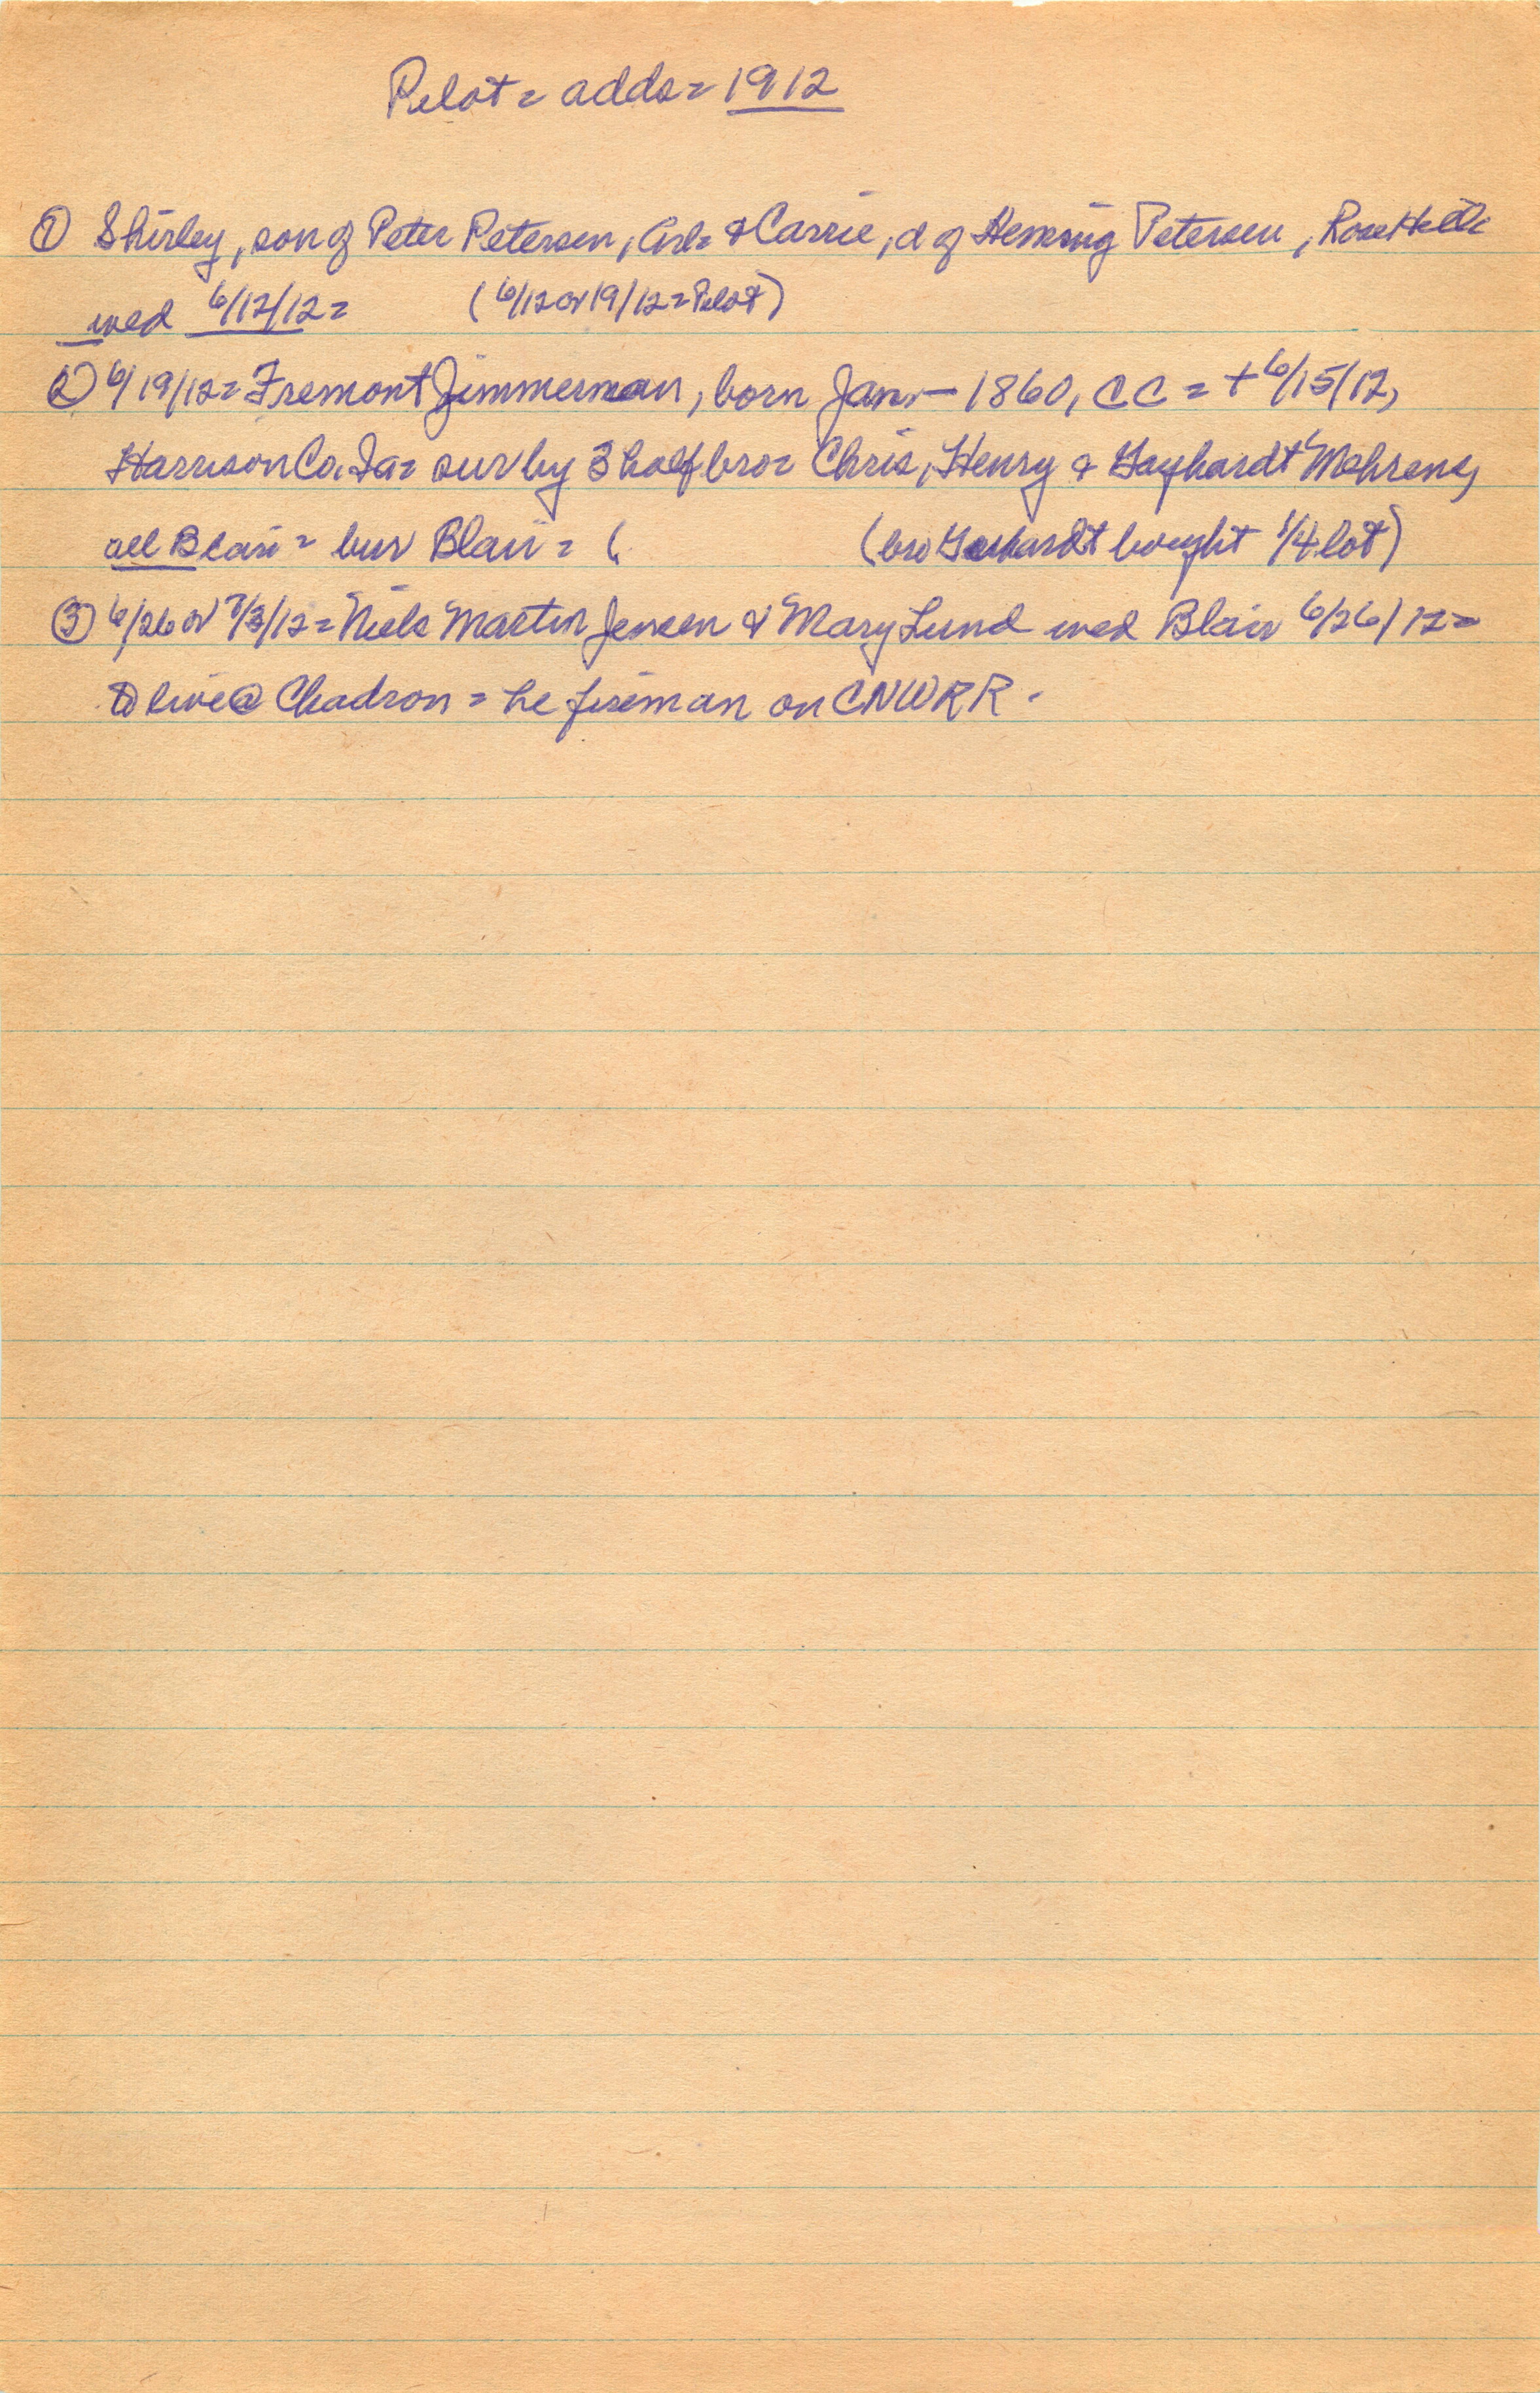 Pilot = adds = 1912
① Shirley, son of Peter Petersen, Arl= & Carrie, d of Heming Petersen, Rose Hill
wed 6/12/12 = (6/12 or 19/12 = Pilot)
② 6/19/12 = Fremont Zimmerman, born Jan - 1860, CC = + 6/15/12,
Harrison Co. Ia = sur by 3 half bro = Chris, Henry & Gayhardt Mehrens,
all Blair = bur Blair = ( (bro Gerhardt bought 1/4 lot)
③ 6/26 or 7/3/12 = Niels Martin Jensen & Mary Lund wed Blair 6/26/12 =
to live @ Chadron = he fireman on CNWRR -